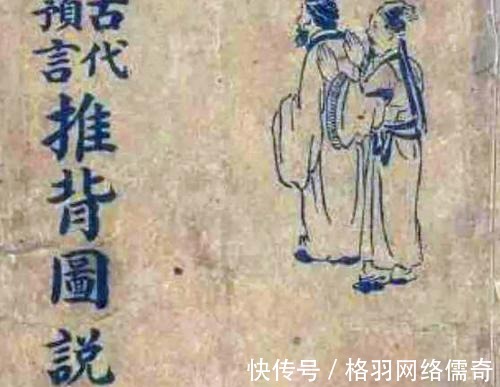 古代
預言
推背圖說
快传号/格羽网络儒奇